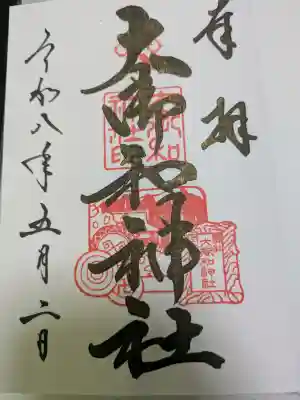 奉拝
大御和神社
令和八年五月二日